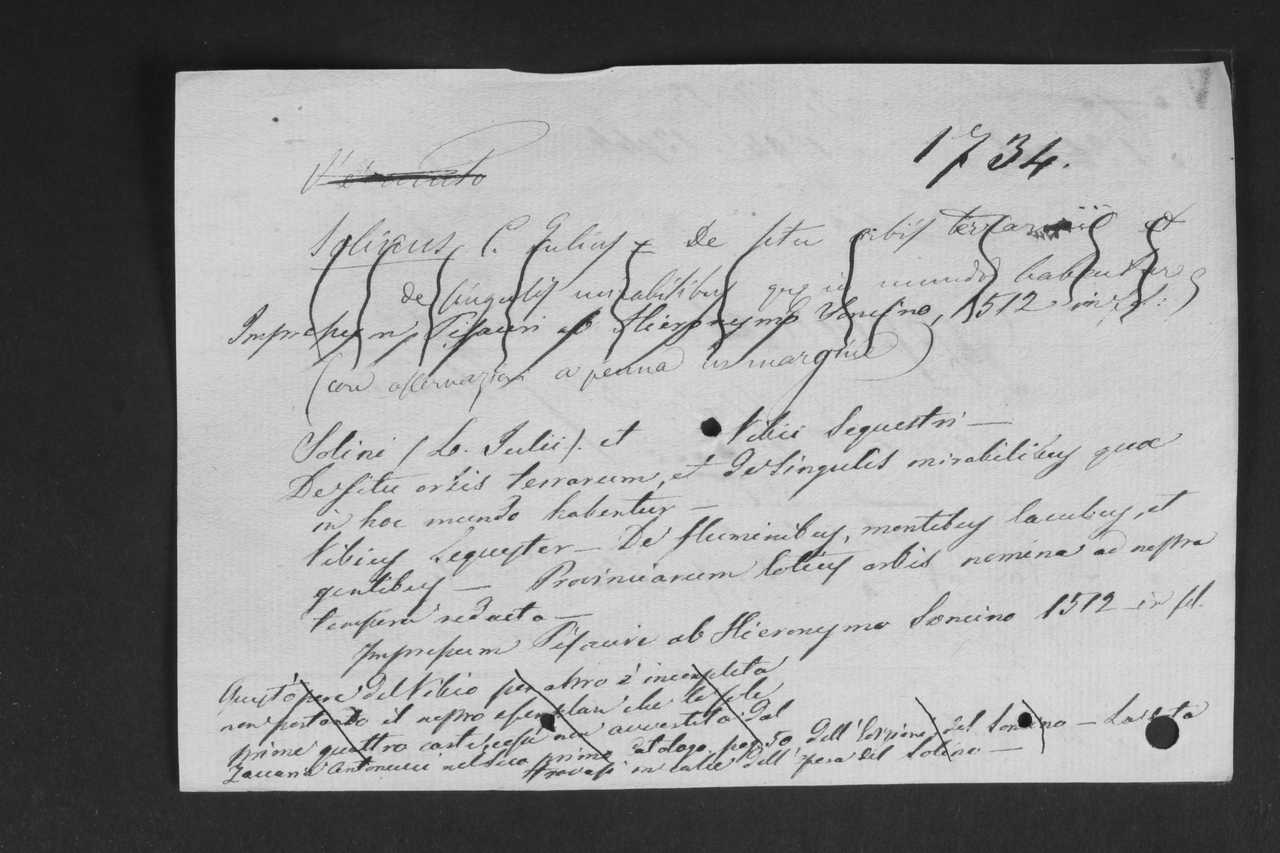 1734.
Solinus, C. Julius = De situ orbis terrarum et
de singulis mirabilibus que in mundo habentur
Impressum Pisauri ab Hieronymo Soncino, 1512 in fol:
(con osservazioni a penna in margine)
Solini (C. Julii). et Vibii Sequestri —
De situ orbis terrarum, et de singulis mirabilibus quæ
in hoc mundo habentur —
Vibius Sequester — De fluminibus, montibus lacubus, et
gentibus — Provinciarum totius orbis nomina ad nostra
tempora redacta —
Impressum Pisauri ab Hieronymo Soncino 1512 in fol.
Quest'opera del Vibio per altro è incompleta
non portando il nostro esemplare che le sole
prime quattro carte, così non avvertita dal
Zaccaria Antonucci nel suo primo Catalogo pag. 50 dell'Edizioni del Soncino — La detta
trovasi in calce dell'opera del Solino —